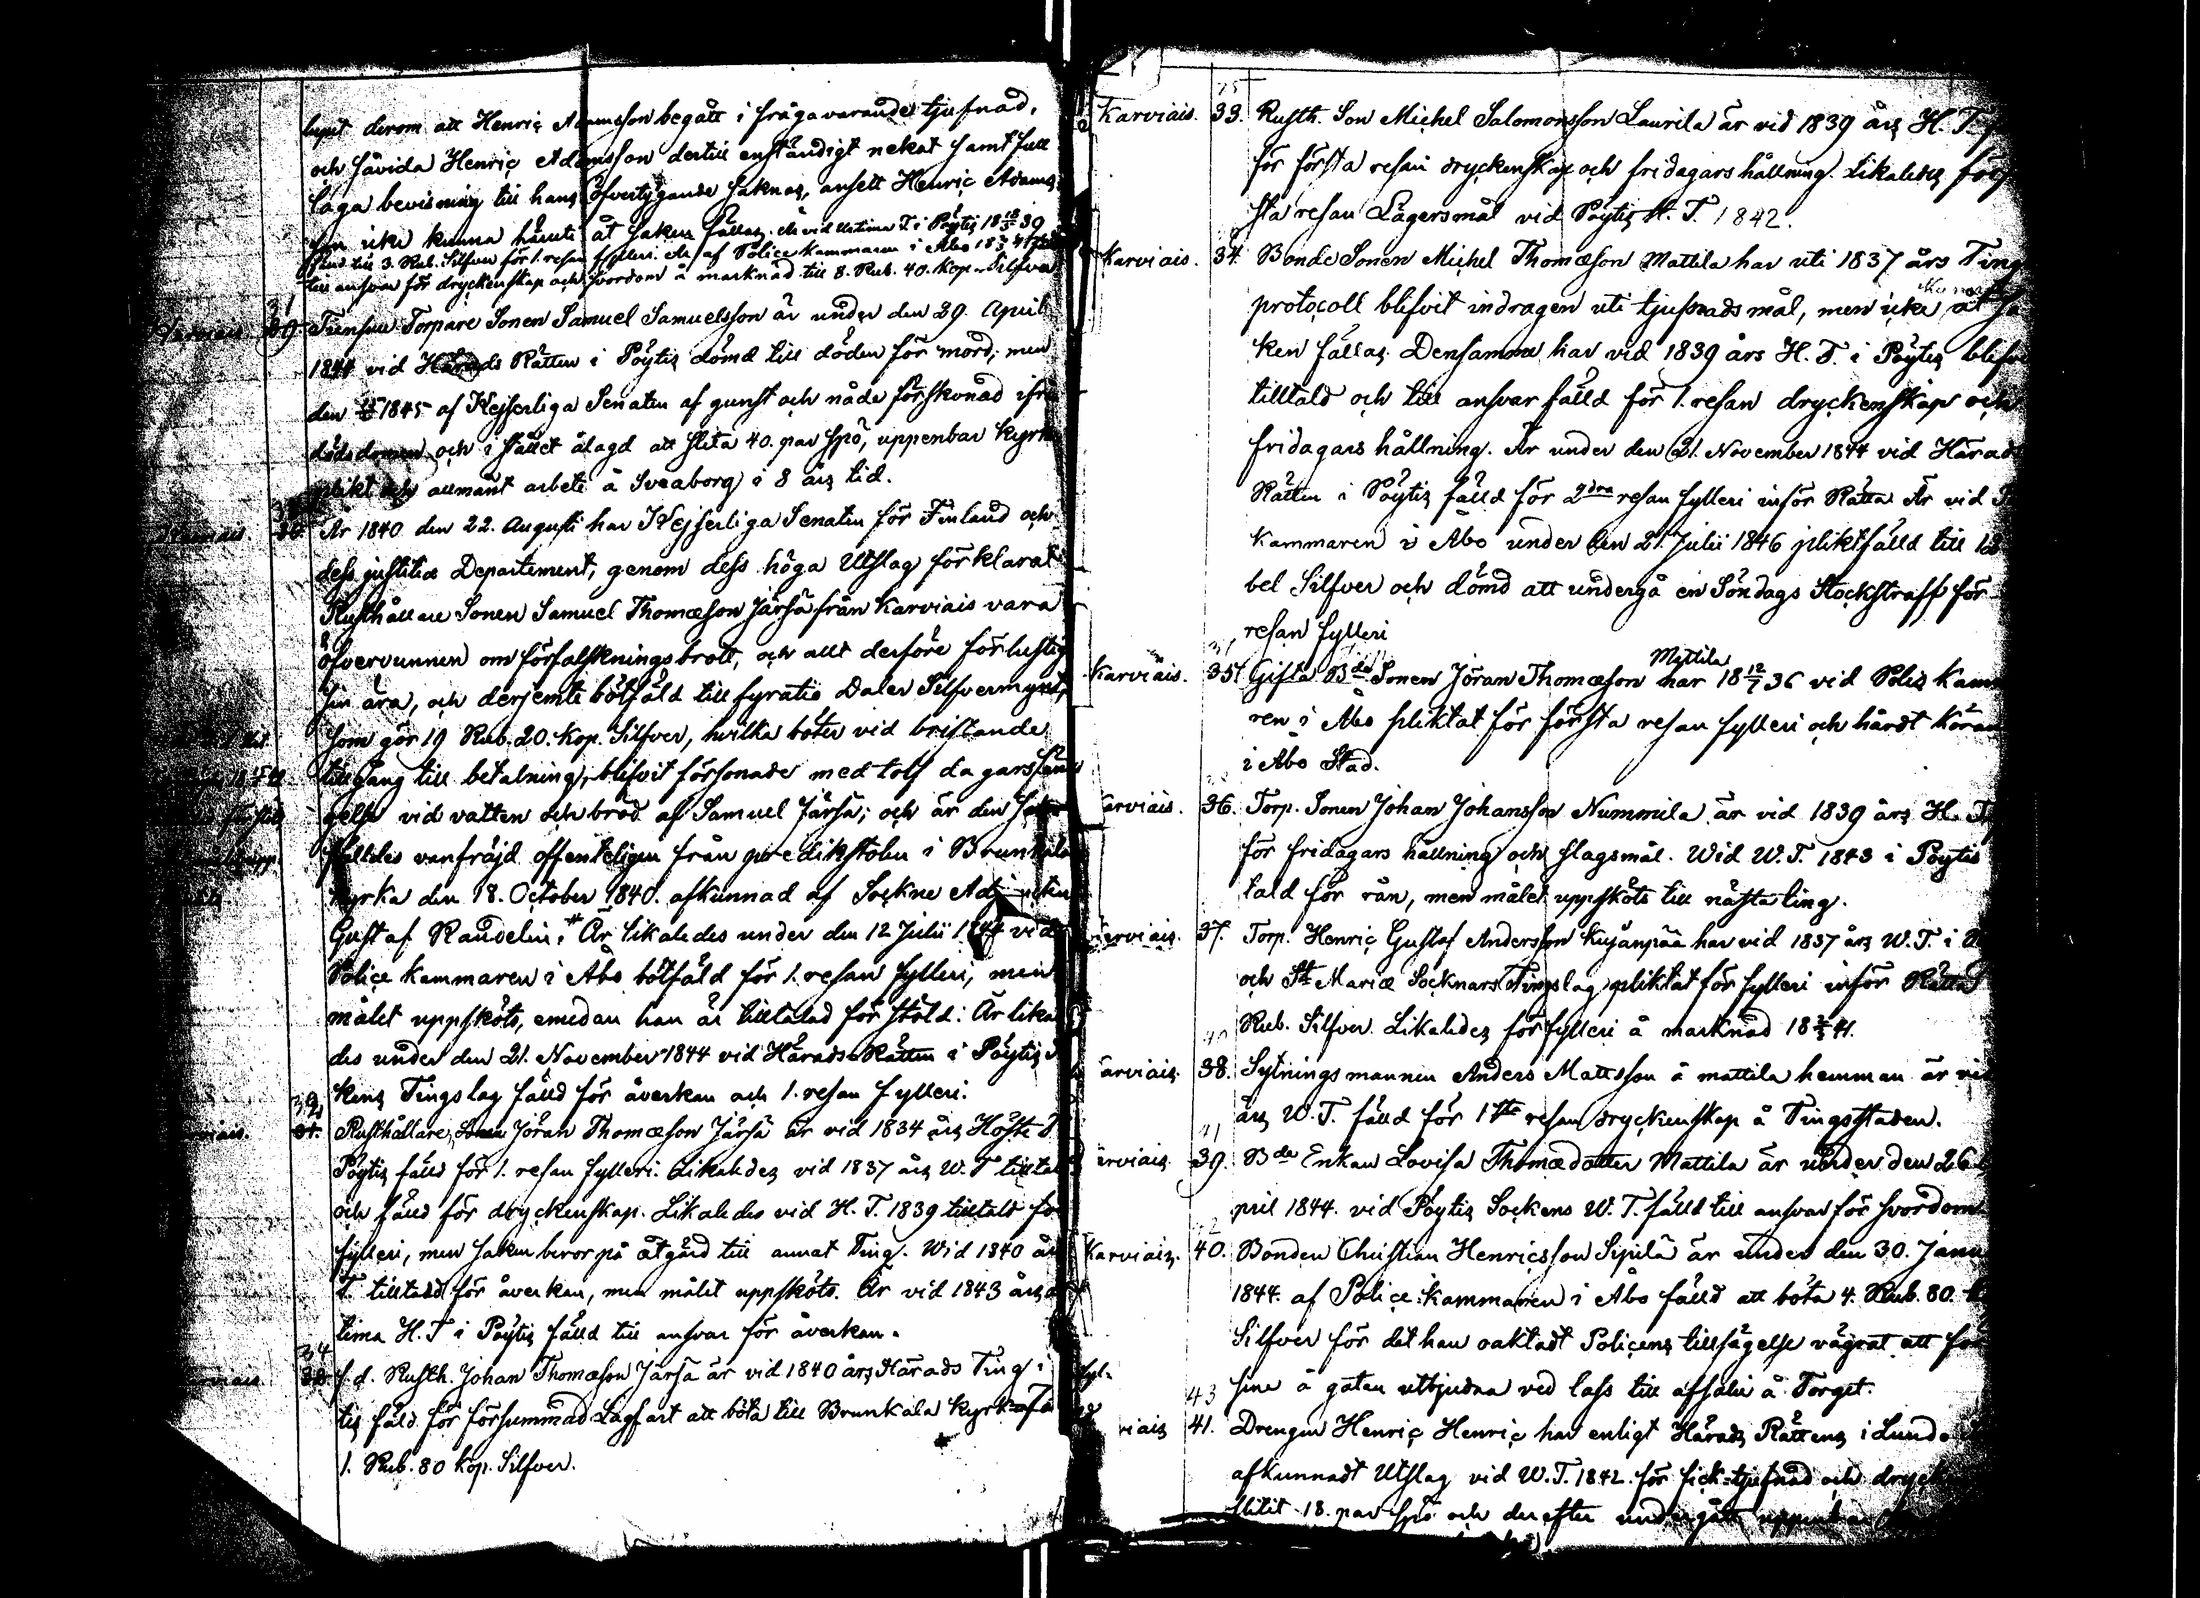 derom att Henric Adamsson begått i frågavarande tjufnad,
och såvida Henric Adamsson dertill enständigt nekat samt full
laga bevisning till hans öfvertygande saknas, ansett Henric Adams
son icke kunna häruti åt saken fällas. Är vid Urtima T. i Pöytis 18 39
till 3. Rub. Silfver för 1. resan fylleri. Är af Police Kammaren i Åbo 18
till ansvar för dryckenskap och svordom å marknad till 8. Rub. 40. Kop. Silfver
31
29. Torpare Sonen Samuel Samuelsson är under den 29. April
1844 vid Härads Rätten i Pöytis dömd till döden för mord, men
den 1845 af Kejserliga Senaten af gunst och nåde förskonad ifrån
dödsdomen och i stället ålagd att slita 40. par spö, uppenbar kyrko
plikt och allmänt arbete å Sveaborg i 8 års tid.
År 1840 den 22. Augusti har Kejserliga Senaten för Finland och
dess justitiæ Departement, genom dess höga Utslag förklarat
Rusthållare Sonen Samuel Thomæson Järsä från Karviais vara
öfvervunnen om förfalskningsbrott, och allt derföre förlustig
sin ära, och derjemte bötfäld till fyratio Daler Silfvermynt,
som gör 19 Rub. 20. Kop. Silfver, hvilka böter vid bristande
tillgång till betalning, blifvit försonade med tolf dagars fän
gelse vid vatten och bröd af Samuel Järsä; och är den
vanfräjd offenteligen från predikstolen i Brunkala
kyrka den 18. October 1840. afkunnad af Sockne Adjuncten
Gustaf Randelin. # Är likaledes under den 12 Julii 1844 vid
Police kammaren i Åbo bötfäld för 1. resan fylleri, men
målet uppsköts, emedan han är tilltalad för stöld. Är lika
des under den 21. November 1844 vid Härads Rätten i Pöytis
kens Tingslag fälld för åverkan och 1. resan fylleri.
Rusthållare Sonen Jöran Thomæson Järsä är vid 1834 års Höste T.
Pöytis fälld för 1. resan fylleri. Likaledes vid 1837 års W. T tilltal
och fälld för dryckenskap. Likaledes vid H. T. 1839 tilltald för
fylleri, men saken beror på åtgärd till annat Ting. Wid 1840 års
T. tilltald för åverkan, men målet uppsköts. Är vid 1843 års
tima H. T i Pöytis fälld till ansvar för åverkan.
34
f. d. Rusth. Johan Thomæson Järsä är vid 1840 års Härads Ting i
tis fäld för försummad Lagfart att böta till Brunkala kyrka
1. Rub. 80 kop. Silfver.
Karviais. 33. Rusth. Son Michel Salomonsson Laurila är vid 1839 års H. T.
för första resan dryckenskap och fridagars hållning. Likaledes för
sta resan Lägersmål vid Pöytis H. T. 1842.
Karviais. 34. Bonde Sonen Michel Thomæson Mattila har uti 1837 års Tings
protocoll blifvit indragen uti tjufnads mål, men icke åt sa
ken fällas. Densamme har vid 1839 års H. T. i Pöytis blifvit
tilltald och till ansvar fälld för 1. resan dryckenskap och
fridagars hållning. Är under den 21. November 1844 vid Härads
Rätten i Pöytis fälld för 2dra resan fylleri inför Rätta. Är vid
Kammaren i Åbo under den 21. Julii 1846 pliktfälld till
bel Silfver och dömd att undergå en Söndags Stockstraff för
resan fylleri
Karviais. 35. Gifta Bde Sonen Jöran Thomæson Mattila har 18 12/7 36 vid Polis Kamma
ren i Åbo pliktat för första resan fylleri och hårdt köran
i Åbo Stad.
arviais. 36. Torp. Sonen Johan Johansson Nummila är vid 1839 års H. T
för fridagars hållning och slagsmål. Wid W. T. 1843 i Pöytis
tald för rån, men målet uppsköts till nästa ting.
arviais. 37. Torp. Henric Gustaf Andersson Kujanpää har vid 1837 års W. T. i
och St Mariæ Socknars Tingslag pliktat för fylleri inför Rätta
Rub. Silfver. Likaledes för fylleri å marknad 18 41.
40
arviais. 38. Sytningsmannen Anders Mattsson å mattila hemman är vid
års W. T. fälld för 1sta resan dryckenskap å Tingsstaden.
41
arviais 39. Bde Enkan Lovisa Thomædotter Mattila är under den 26
pril 1844. vid Pöytis Sockens W. T. fälld till ansvar för svordom.
42
Karviais. 40. Bonden Christian Henricsson Sipilä är under den 30. Janu
1844. af Police Kammaren i Åbo fälld att böta 4. Rub. 80.
Silfver för det han oaktadt Policens tillsägelse vägrat att för
sine å gatan utbjudna ved lass till afsalu å Torget.
43
viais 41. Drengen Henric Henric har enligt Härads Rättens i Lundo
afkunnadt Utslag vid W. T. 1842. för fick-tjufnad och dryck
slitit 18. par spö och derefter undergått uppenbar